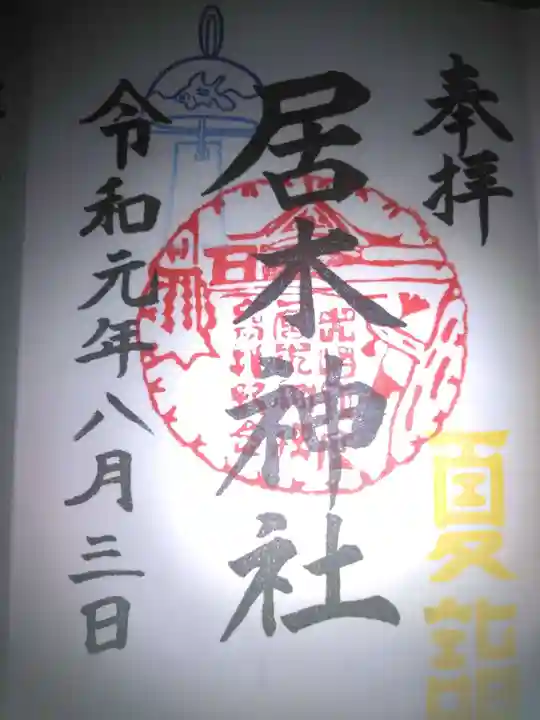 奉拝
居木神社
令和元年八月三日
夏詣